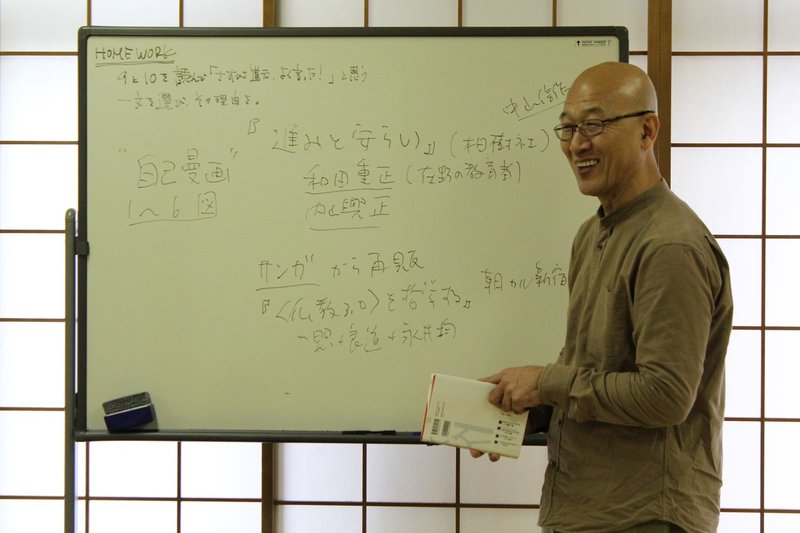 HOMEWORK
9と10を読んで「さすが道元、よく言った!」と思う
一文を選び、その理由を。
『進みと安らい』(柏樹社)
"自己曼画"
和田重正(在野の教育者)
1〜6図
サンガから再販
朝カル新宿
『〈仏教3.0〉を哲学する』
一照+良道+永井均